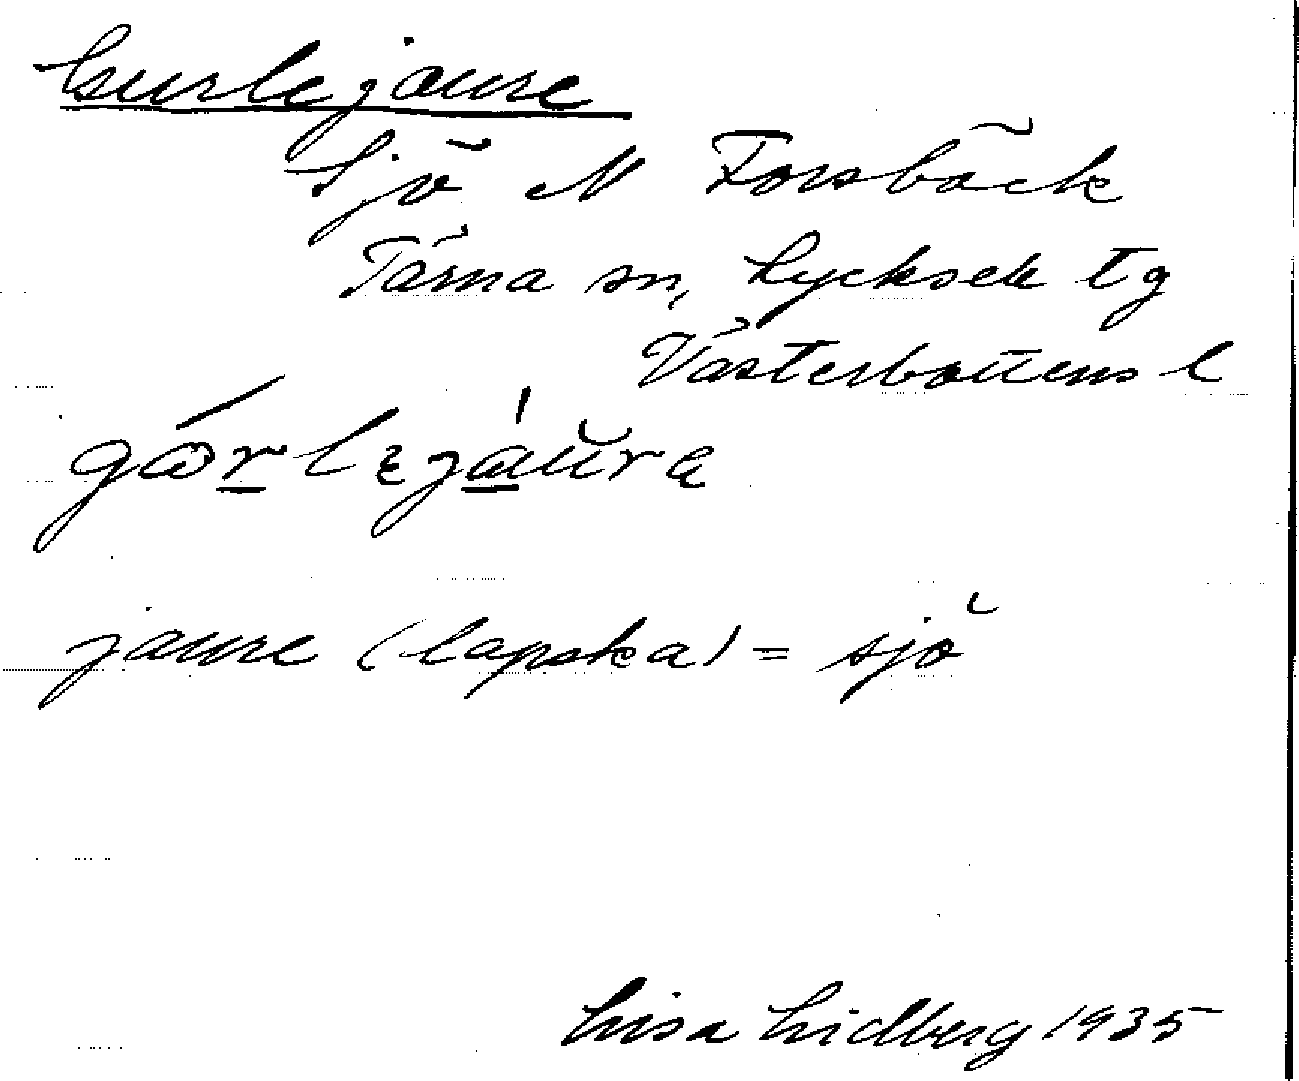 Gurlejaure
Sjö N Forsbäck
Tärna sn, Lycksele tg
Västerbottens l
gɷ́rlejáŭrę
jaure (lapska) = sjö
Lisa Lidberg 1935